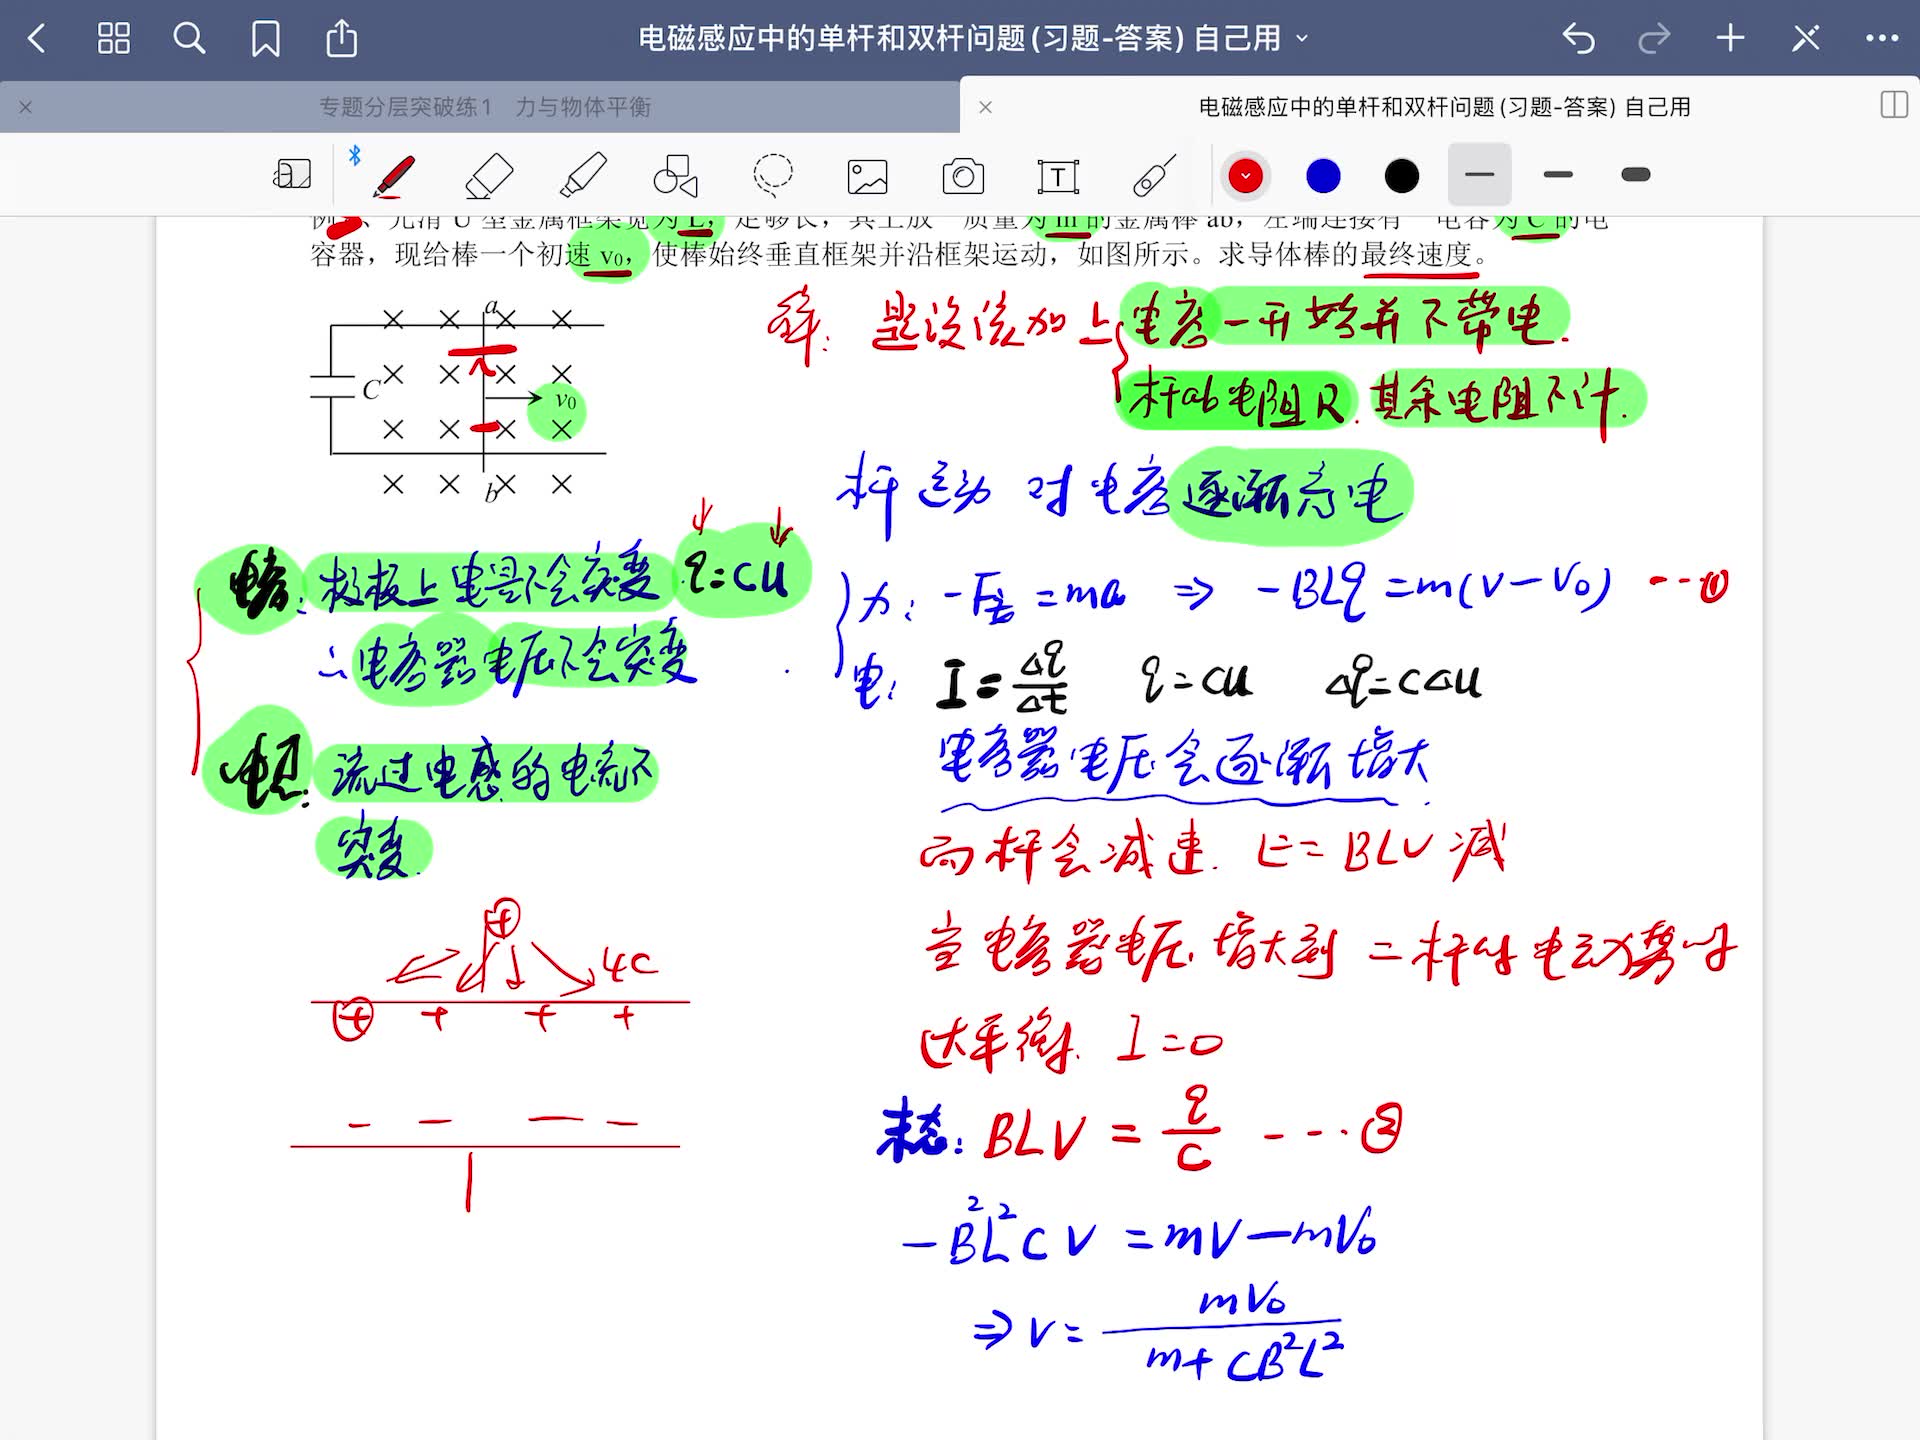 电磁感应中的单杆和双杆问题(习题-答案) 自己用
专题分层突破练1 力与物体平衡
电磁感应中的单杆和双杆问题(习题-答案) 自己用
光滑 U 型金属框架宽为 L，足够长，其上放一质量为 m 的金属棒 ab，左端连接有一电容为 C 的电
容器，现给棒一个初速 v₀，使棒始终垂直框架并沿框架运动，如图所示。求导体棒的最终速度。
a
C
v₀
b
R
解: 是没说加上 电容一开始并不带电.
杆ab电阻R. 其余电阻不计.
杆运动 对电容逐渐充电
电容: 极板上电量不会突变 q=CU
∴电容器电压不会突变
电感: 流过电感的电流不
突变.
力: -F安=ma ⇒ -BLq=m(v-v₀) ---①
电: I=Δq/Δt q=CU Δq=CΔU
电容器电压会逐渐增大.
而杆会减速. E=BLV减
当电容器电压增大到=杆的电动势时
达平衡. I=0
末态: BLV=q/C ---②
-B²L²CV=mV-mV₀
⇒V=mV₀/(m+CB²L²)
+ 4C
+ + + +
- - - -